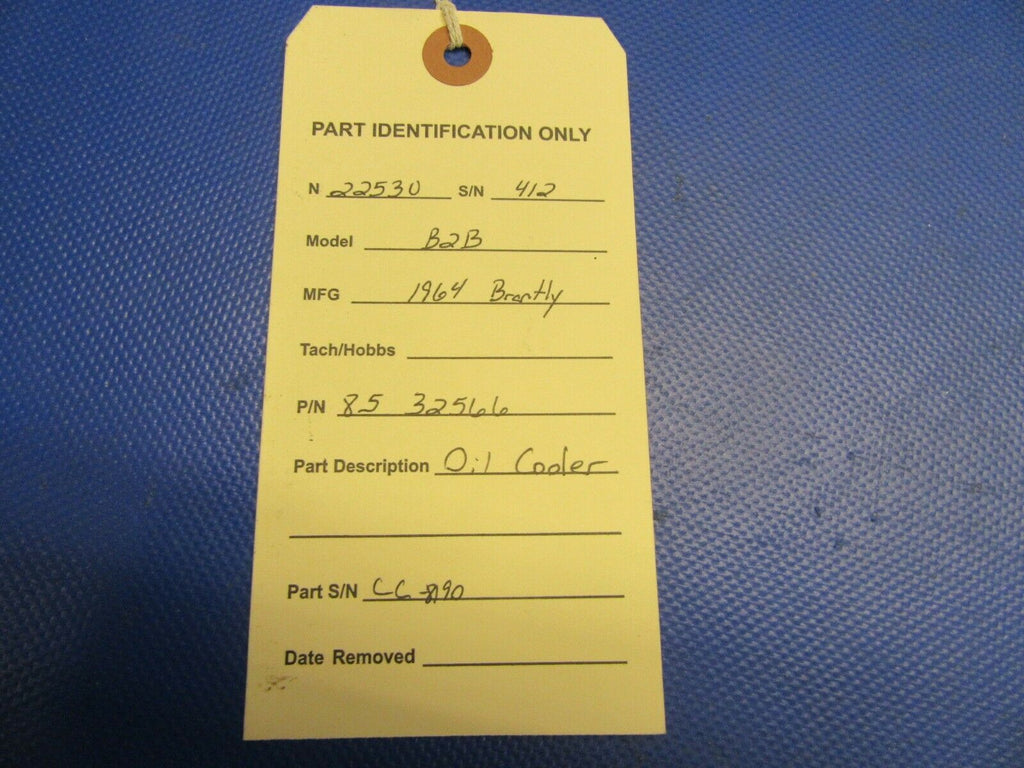 PART IDENTIFICATION ONLY
N 22530 S/N 412
Model B2B
MFG 1964 Brantly
Tach/Hobbs
P/N 85 32566
Part Description Oil Cooler
Part S/N
Date Removed